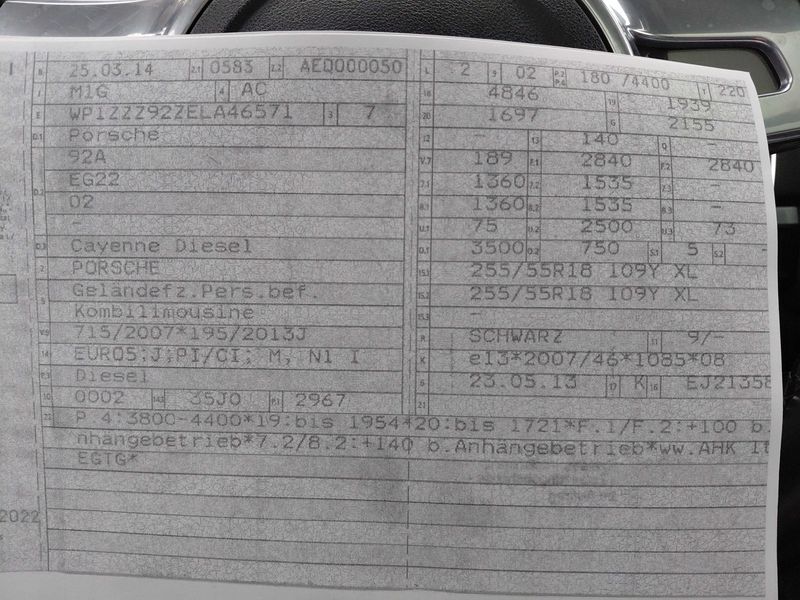 B 25.03.14 2.1 0583 2.2 AEQ000050
J M1G 4 AC
E WP1ZZZ92ZELA46571 3 7
D.1 Porsche
92A
D.2 EG22
02
-
D.3 Cayenne Diesel
2 PORSCHE
5 Geländefz.Pers.bef.
Kombilimousine
V.9 715/2007*195/2013J
14 EURO5;J;PI/CI; M, N1 I
P.3 Diesel
10 0002 14.1 35J0 P.1 2967
L 2 9 02 P.2 P.4 180 /4400 T 220
18 4846 19 1939
20 1697 G 2155
12 - 13 140 Q -
V.7 189 F.1 2840 F.2 2840
7.1 1360 7.2 1535 7.3 -
8.1 1360 8.2 1535 8.3 -
U.1 75 U.2 2500 U.3 73
O.1 3500 O.2 750 S.1 5 S.2 -
15.1 255/55R18 109Y XL
15.2 255/55R18 109Y XL
15.3 -
R SCHWARZ 11 9/-
K e13*2007/46*1085*08
6 23.05.13 17 K 16 EJ21358
21
22 P 4:3800-4400*19:bis 1954*20:bis 1721*F.1/F.2:+100 b.
nhängebetrieb*7.2/8.2:+140 b.Anhängebetrieb*ww.AHK lt
EGTG*
2022